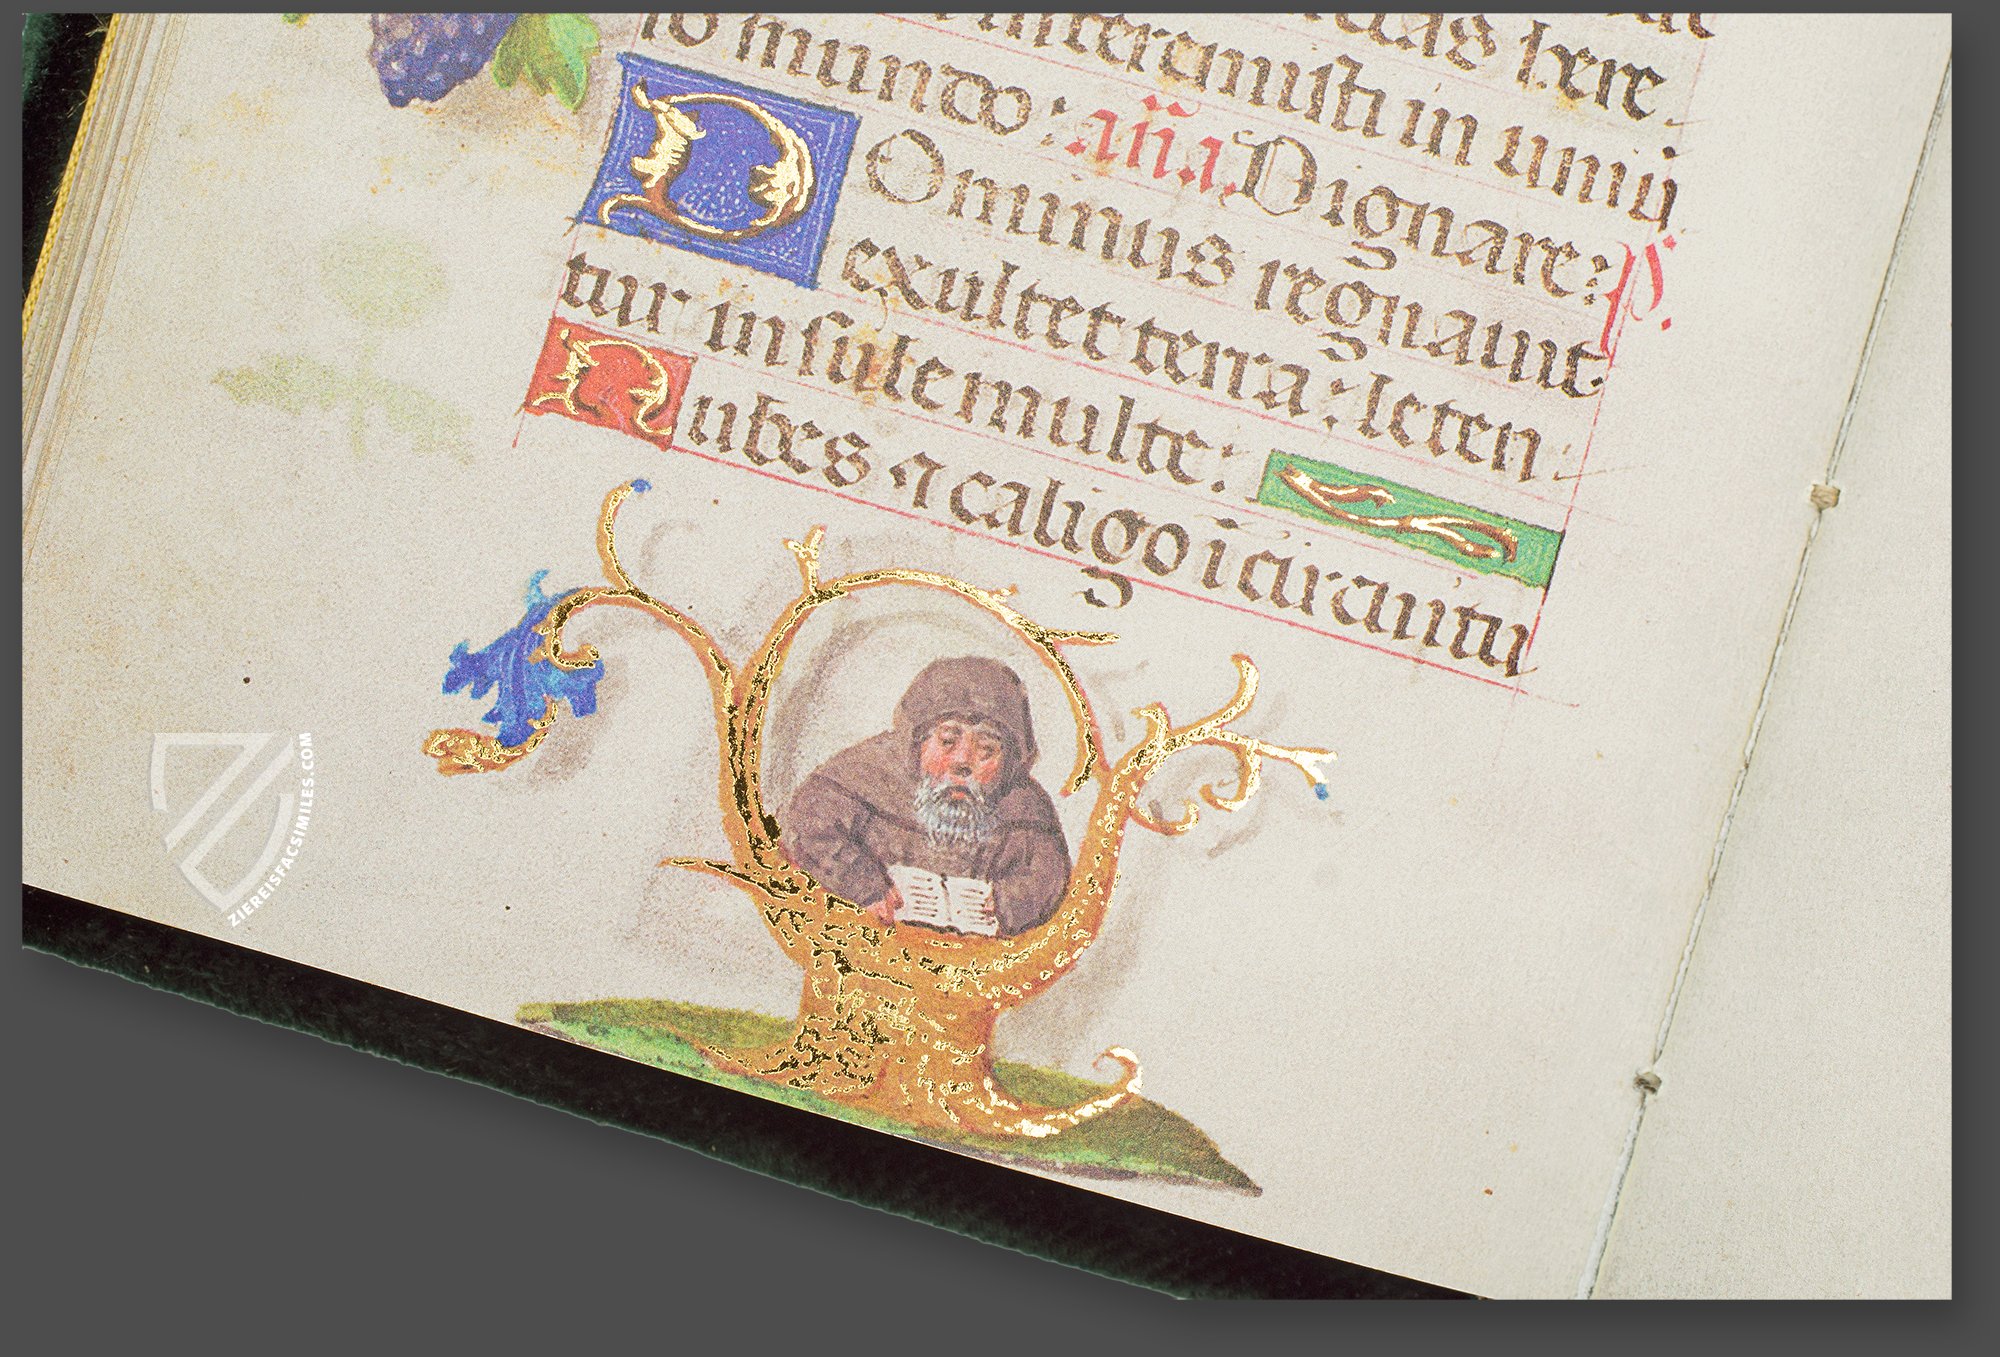 here
interemisti in uniũ
so mundo: añ̃a. Dignare: P̃s.
DOminus regnauit
exultet terra: leten
tur insule multe:
Nubes ⁊ caligo i circuitu
ZIEREISFACSIMILES.COM